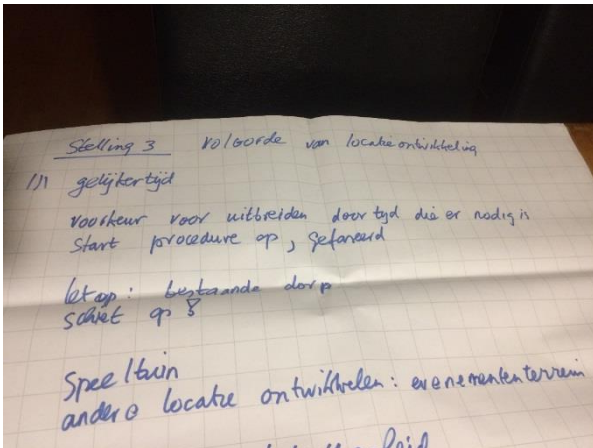 Stelling 3 volgorde van locatieontwikkeling
gelijkertijd
voorkeur voor uitbreiden door tijd die er nodig is
start procedure op, gefaseerd
let op: bestaande dorp
schiet op
Speeltuin
andere locatie ontwikkelen: evenemententerrein